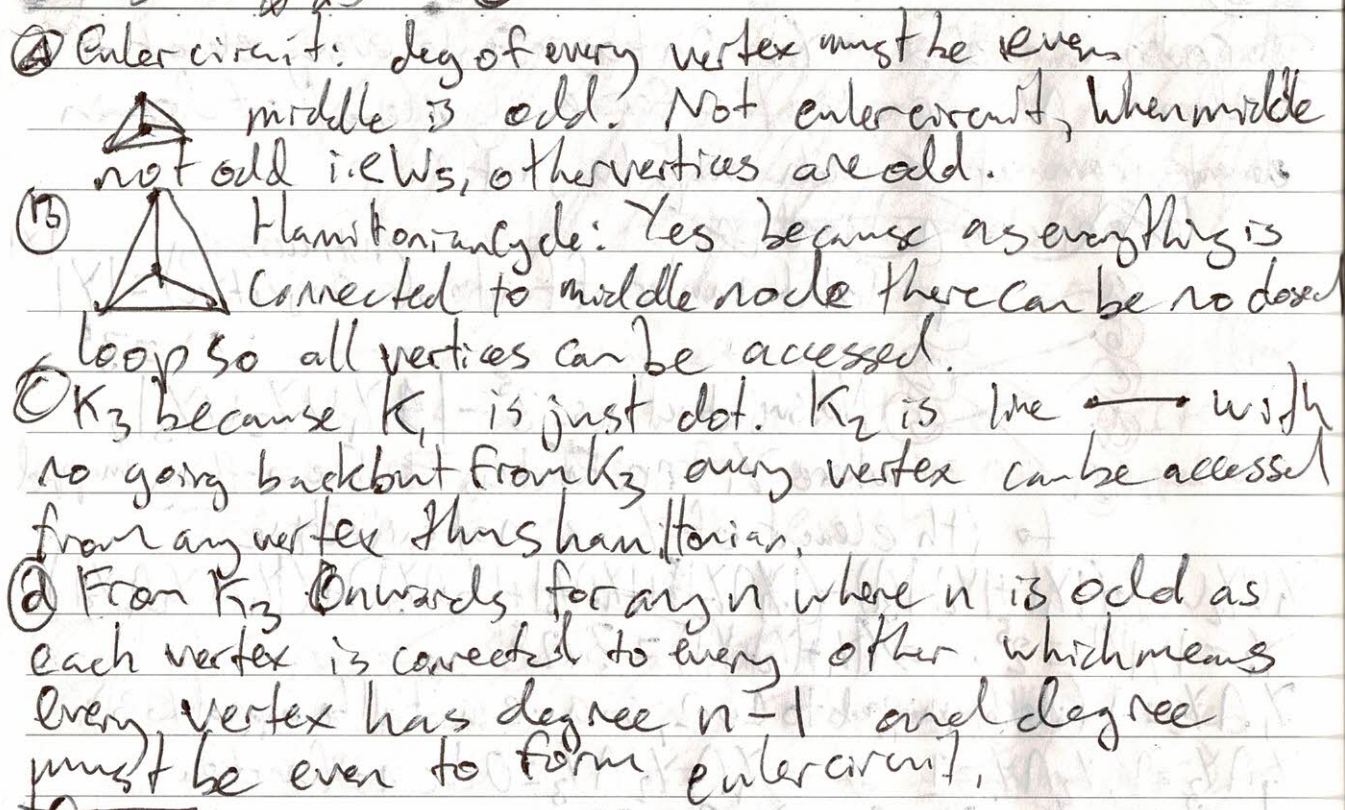 (a) Euler circuit: deg of every vertex must be even.
middle is odd. Not euler circuit, When middle
not odd i.e W5, other vertices are odd.
(b) Hamiltonian Cycle: Yes because as everything is
connected to middle node there can be no closed
loop so all vertices can be accessed.
(c) K3 because K1 is just dot. K2 is line with
no going back but from K3 every vertex can be accessed
from any vertex thus hamiltonian.
(d) From K3 Onwards for any n where n is odd as
each vertex is connected to every other which means
every vertex has degree n-1 and degree
must be even to form euler circuit.